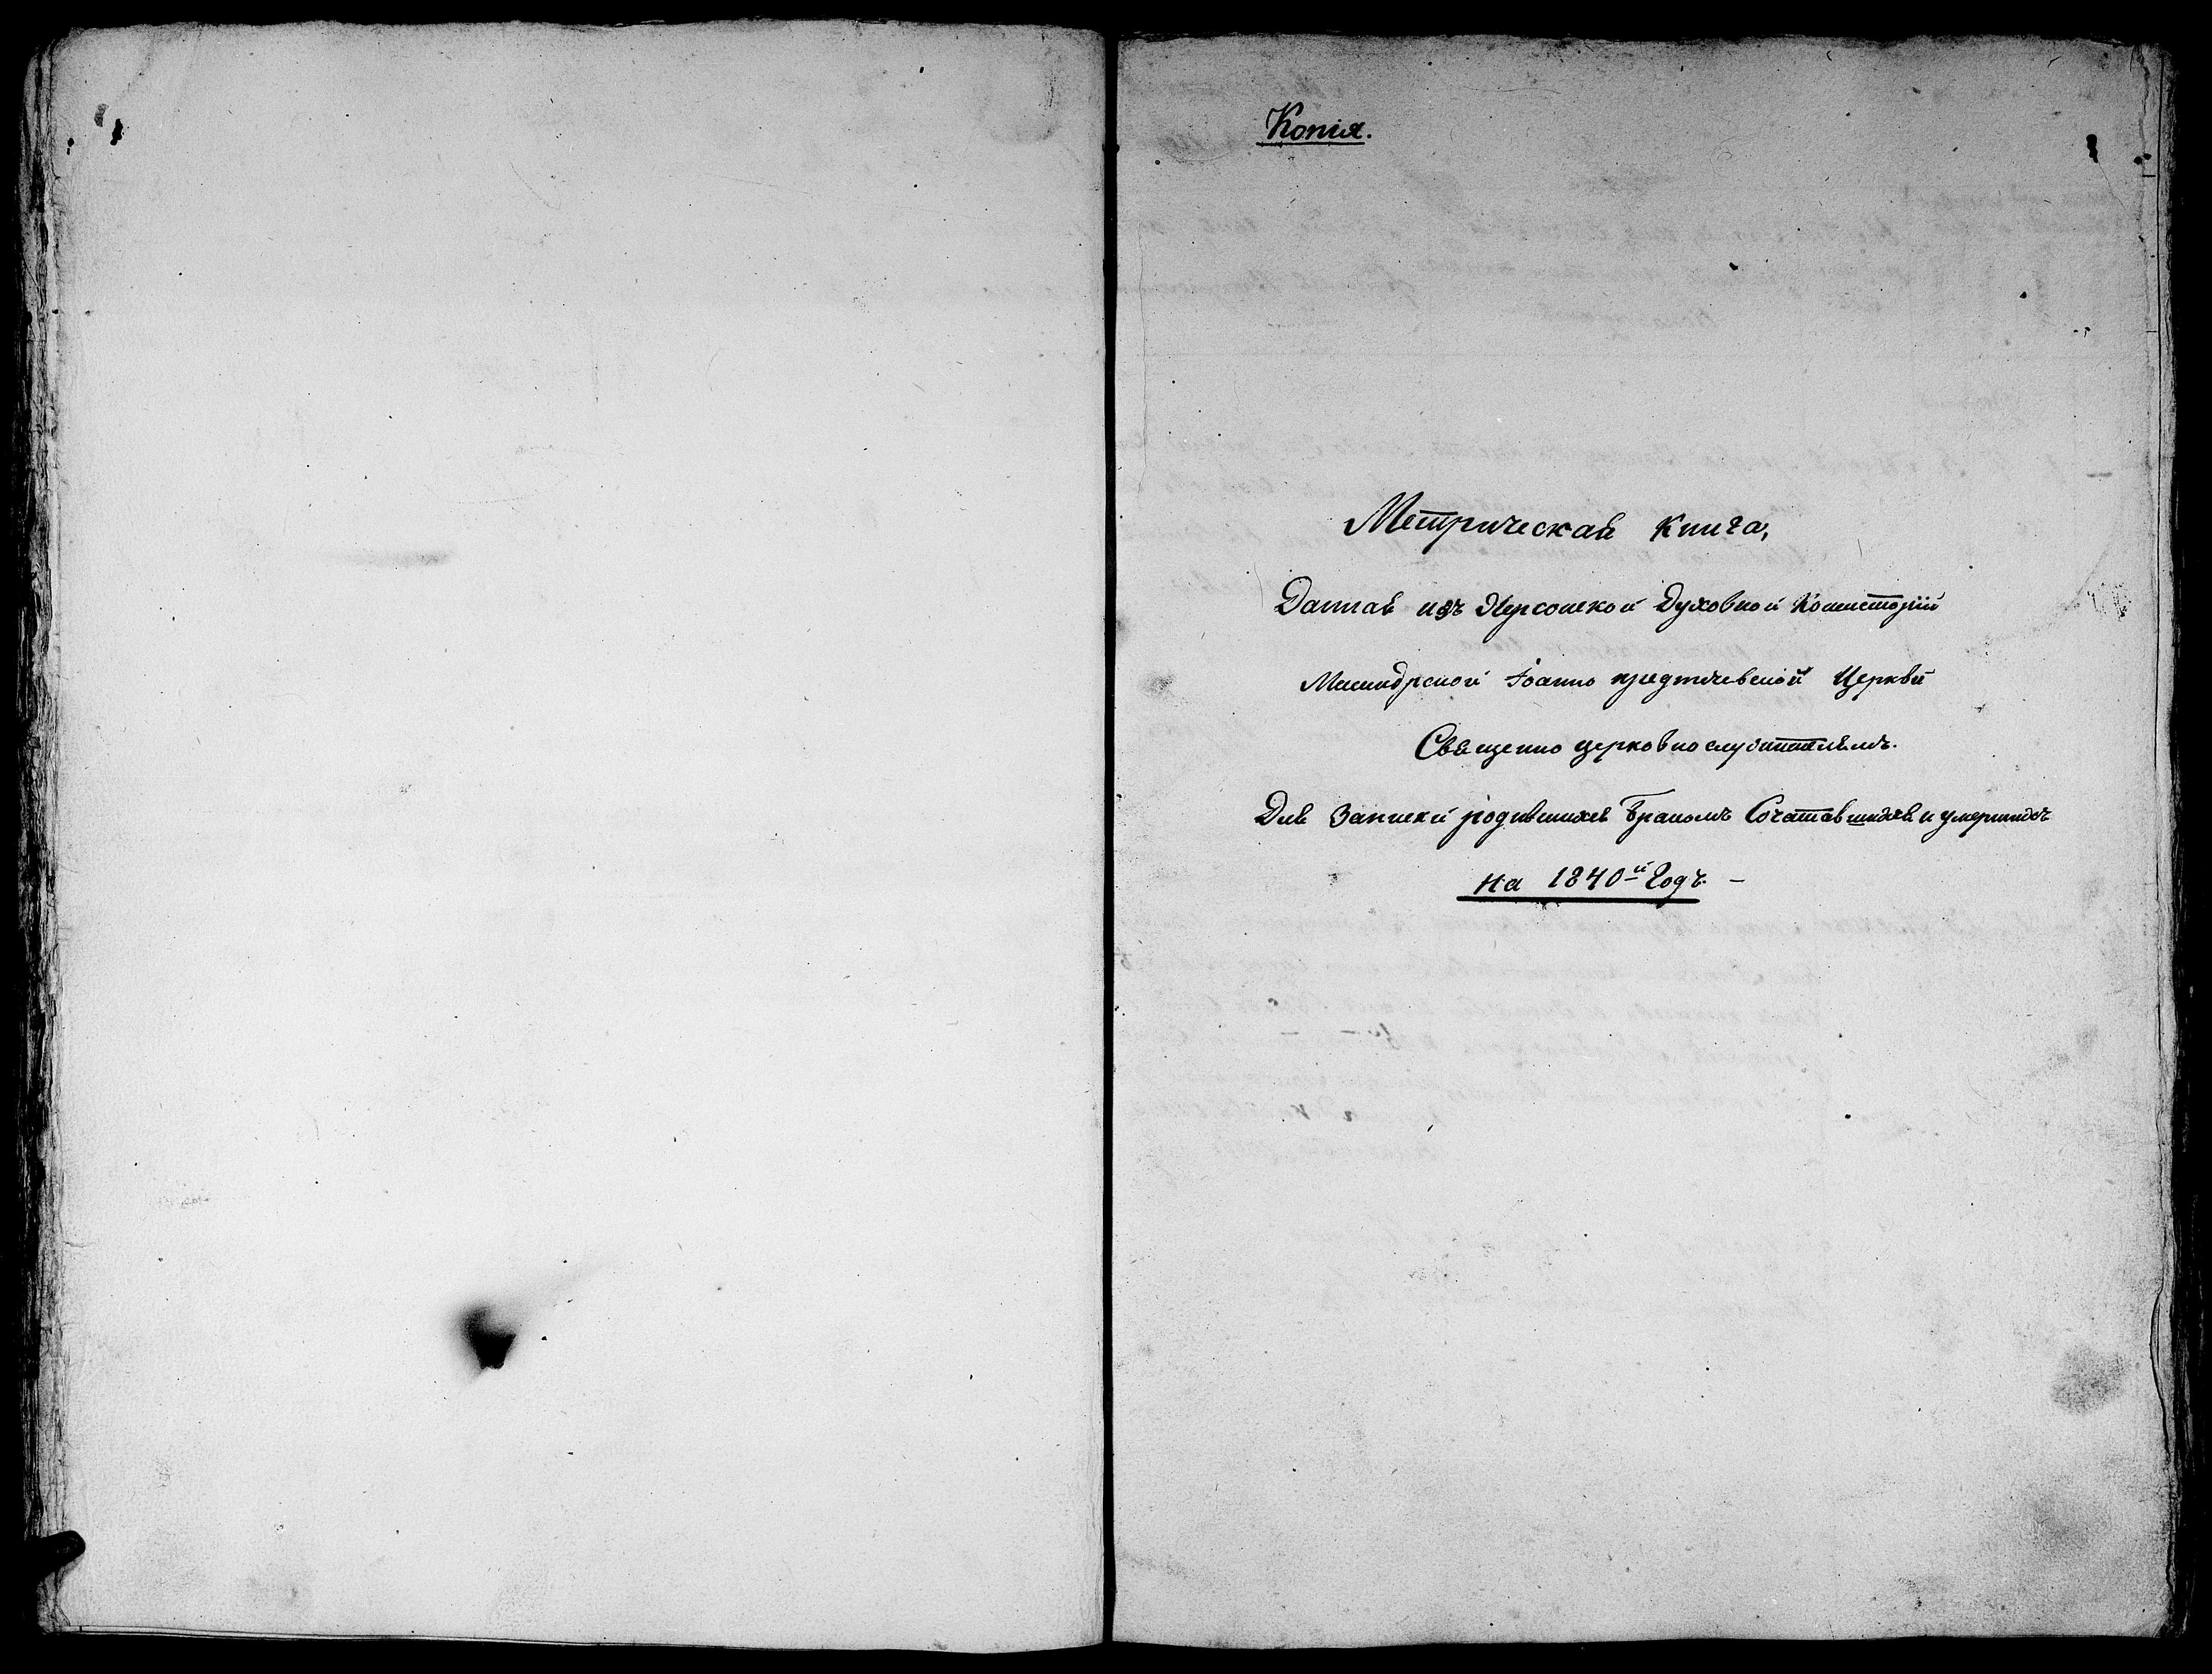 Копія.
Метрическая книга,
Данная изъ Херсонской Духовной Консисторіи
Іоанно предтечевской Церкви
Священно церковно служителямъ.
Для Записки родившихся Бракомъ Сочетавшихся и умершихъ
На 1840й Годъ. —